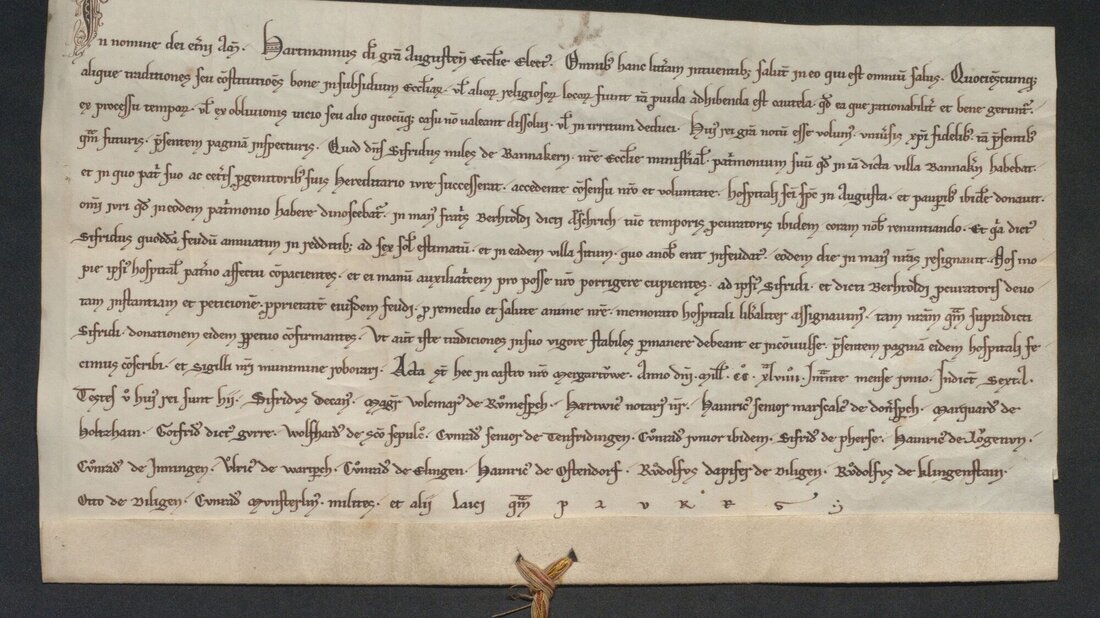 In nomine dei et̄ni Am̄. Hartmannus di grā Augusten̄ Eccl̄ie Elect᷒. Omnib᷒ hanc litt̄am intuentib᷒ salut̄ in eo qui est omniū salus. Quociēscumq᷒
alique traditiones seu cōstitutiōes bone in subsidium Eccl̄iar᷒. ul̄ alior᷒ religiosor᷒ locor᷒ fiunt tā ꝓuida adhibenda est cautela. qd̄ ea que rationabilit̄ et bene gerunt᷒.
ex processu tempor᷒. ul̄ ex obliuionis uicio seu alio quocūq᷒ casu nō ualeant dissolui. ul̄ in irritum deduci. Hui᷒ rei grā notū esse volum᷒. vniu̅sis xp̄i fidelib᷒. tā p̄sentib᷒
qm̄ futuris. p̄sentem paginā inspecturis. Quod dn̄s Sifridus miles de Bannakern. nr̄e Eccl̄ie ministīal᷒. pat̄monium suū qd̄ in iā dicta villa Bannakn̄ habebat.
et in quo pat̄ suo ac cet̄is ꝓgenitorib᷒ suis hereditario iure successerat. accedente cōsensu nr̄o et voluntate. hospitali sc̄i sp̄c in Augusta. et paupib᷒ ibid̄e donauit.
om̄i iuri qd̄ in eodem pat̄monio habere dinoscebat᷒. in man᷒ frat̄s Berhtoldi dicti tūc temporis ꝓcuratoris ibidem coram nob̄ renuntiando. Et qa dict᷒
Sifridus quoddā feudū annuatim in redditib᷒ ad sex sol̄ estimatū. et in eadem villa situm. quo a nob̄ erat infeudat᷒. eodem die in man᷒ nr̄as resignauit. Nos ino
pie ipsi᷒ hospital̄ pat̄no affectu cōpacientes. et ei manū auxiliat̄cem pro posse nr̄o porrigere cupientes. ad ipsi᷒ Sifridi. et dicti Berhtoldi ꝓcuratoris deuo
tam instantiam et peticionē. ꝓprietatē eiusdem feudi. ꝓ remedio et salute anime nr̄e. memorato hospitali libal̄iter assignauim᷒. tam nr̄am qm̄ supradicti
Sifridi. donationem eidem ꝑpetuo cōfirmantes. Vt aut̄ iste tradiciones in suo vigore stabiles ꝑmanere debeant et incōuulse. p̄sentem paginā eidem hospitali fe
cimus cōscribi. et sigilli nr̄i munimine roborari. Acta st̄ hec in castro nr̄o Mergartowe. Anno dn̄i Mill̄. CC. XLviii. Int̄nte mense Ionio. Indict̄ Sexta.
Testes ū hui᷒ rei sunt hii. Sifridus decan᷒. Magr̄ Volcmar᷒ de Rv̊mespch. Hartwic᷒ notari᷒ nr̄. Hainric᷒ senior marscalc᷒ de Marquard᷒ de
Holtzhain. Gotfrid᷒ dict᷒ gorre. Wolfhard᷒ de sc̄o sepulc̄o. Cunrad᷒ senior de Tenfridingen. Cv̊nrad᷒ ionior ibidem. Sifrid᷒ de pherse. Hainric᷒ de
Cv̊nrad᷒ de Inningen. Vlric᷒ de warpch. Cv̊nrad᷒ de Elingen. Hainric᷒ de Ostendorf. Rv̊dolfus dapifer de Biligen. Rv̊dolfus de klingenstain.
Otto de Biligen. Cvnrad᷒ Mvnsterlin᷒. milites. et alii laici qm̄ p a v R R S